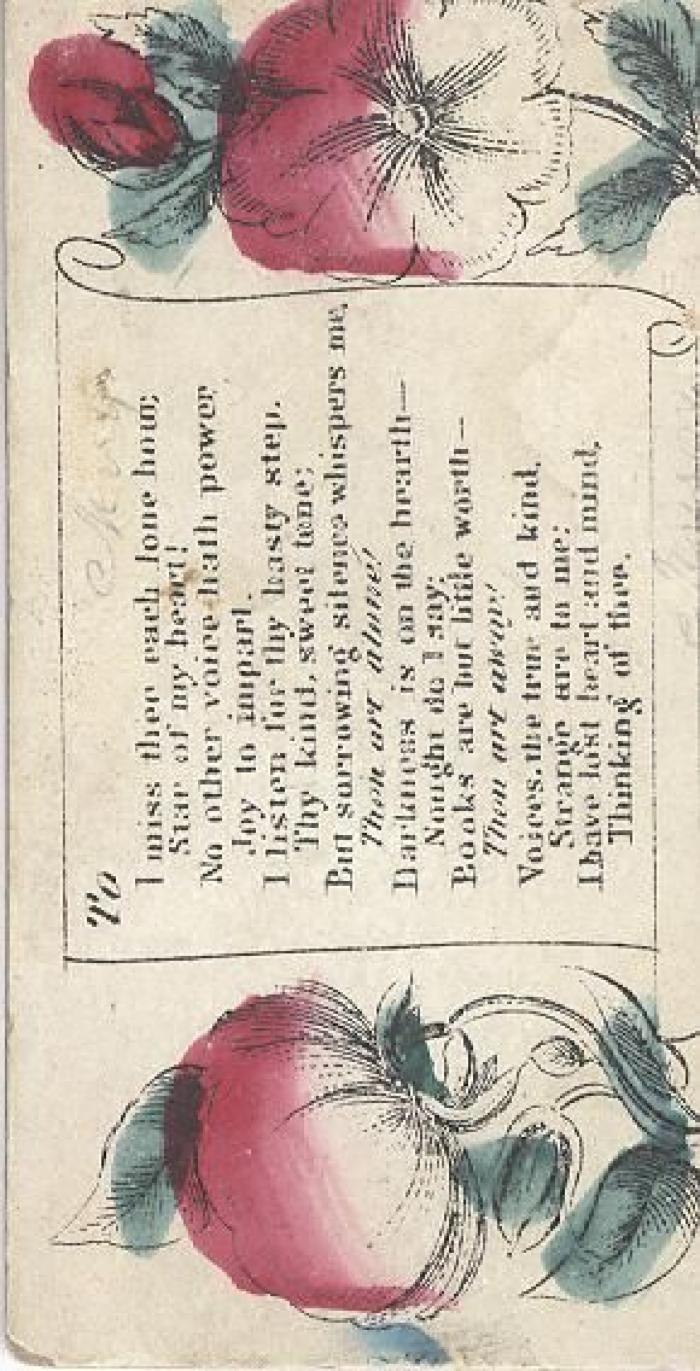 To
I miss thee each lone hour,
Star of my heart!
No other voice hath power
Joy to impart.
I listen for thy hasty step,
Thy kind, sweet tone;
But sorrowing silence whispers me,
Thou art alone!
Darkness is on the hearth—
Nought do I say;
Books are but little worth—
Thou art away!
Voices, the true and kind,
Strange are to me;
I have lost heart and mind,
Thinking of thee.